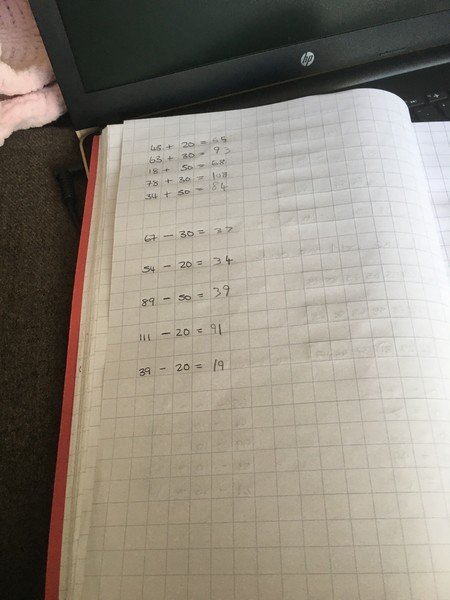 hp
48 + 20 =
63 + 30 = 93
18 + 50 = 68
78 + 30 = 108
34 + 50 = 84
67 - 30 = 37
54 - 20 = 34
89 - 50 = 39
111 - 20 = 91
39 - 20 = 19